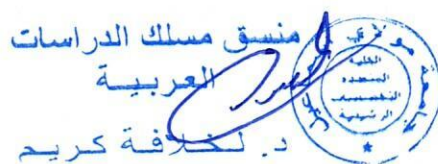 منسق مسلك الدراسات
العربية
د. لخلافة كريم
جامعة مولاي
الكلية
المتعددة
التخصصات
الرشيدية